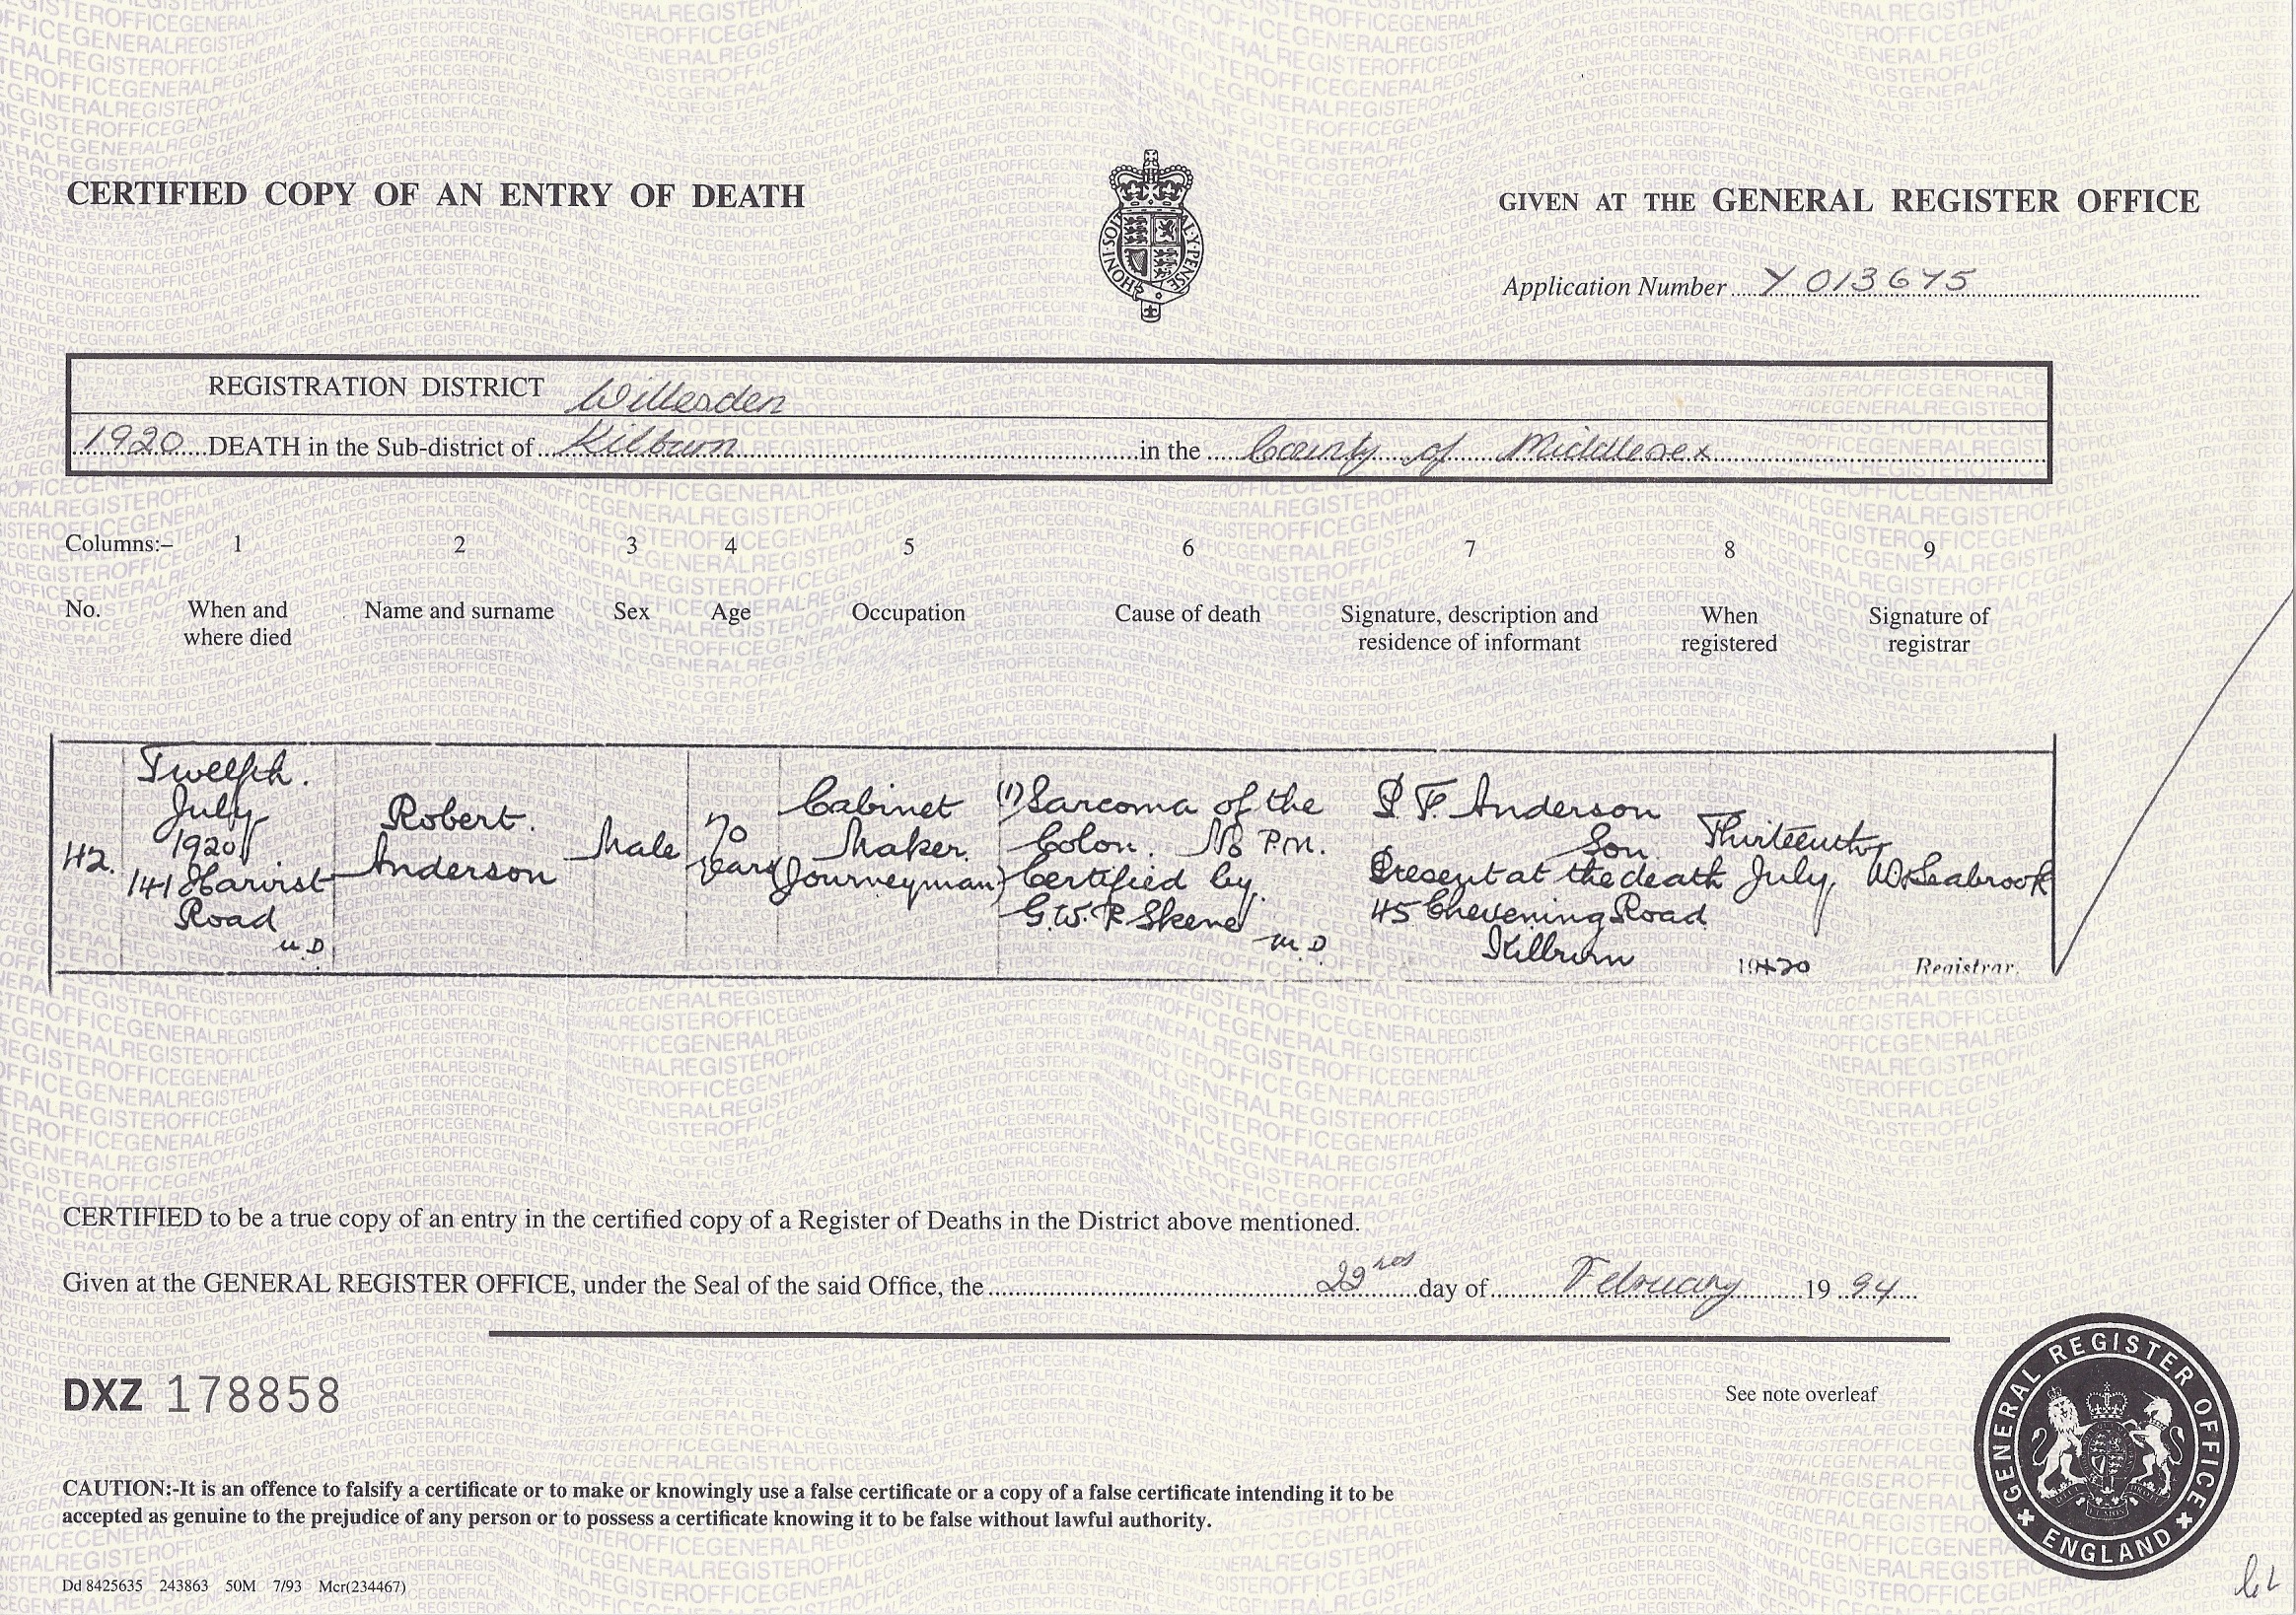 CERTIFIED COPY OF AN ENTRY OF DEATH
GIVEN AT THE GENERAL REGISTER OFFICE
HONI SOIT QUI MAL Y PENSE
Application Number Y 013675
REGISTRATION DISTRICT Willesden
1920 DEATH in the Sub-district of Kilburn in the County of Middlesex
Columns:- 1 2 3 4 5 6 7 8 9
No. When and where died Name and surname Sex Age Occupation Cause of death Signature, description and residence of informant When registered Signature of registrar
42.
Twelfth.
July
1920
141 Harvist
Road
U.D.
Robert.
Anderson
Male
70
years
Cabinet
Maker.
(Journeyman)
(1) Sarcoma of the
Colon. No P.M.
Certified by.
G.W. R Skene
M.D.
F. Anderson
Son.
Present at the death
45 Chevening Road
Kilburn
Thirteenth
July,
1920
W. Seabrook
Registrar.
CERTIFIED to be a true copy of an entry in the certified copy of a Register of Deaths in the District above mentioned.
Given at the GENERAL REGISTER OFFICE, under the Seal of the said Office, the day of February 19 94
DXZ 178858
See note overleaf
GENERAL REGISTER OFFICE
ENGLAND
CAUTION:-It is an offence to falsify a certificate or to make or knowingly use a false certificate or a copy of a false certificate intending it to be
accepted as genuine to the prejudice of any person or to possess a certificate knowing it to be false without lawful authority.
Dd 8425635 243863 50M 7/93 Mcr(234467)